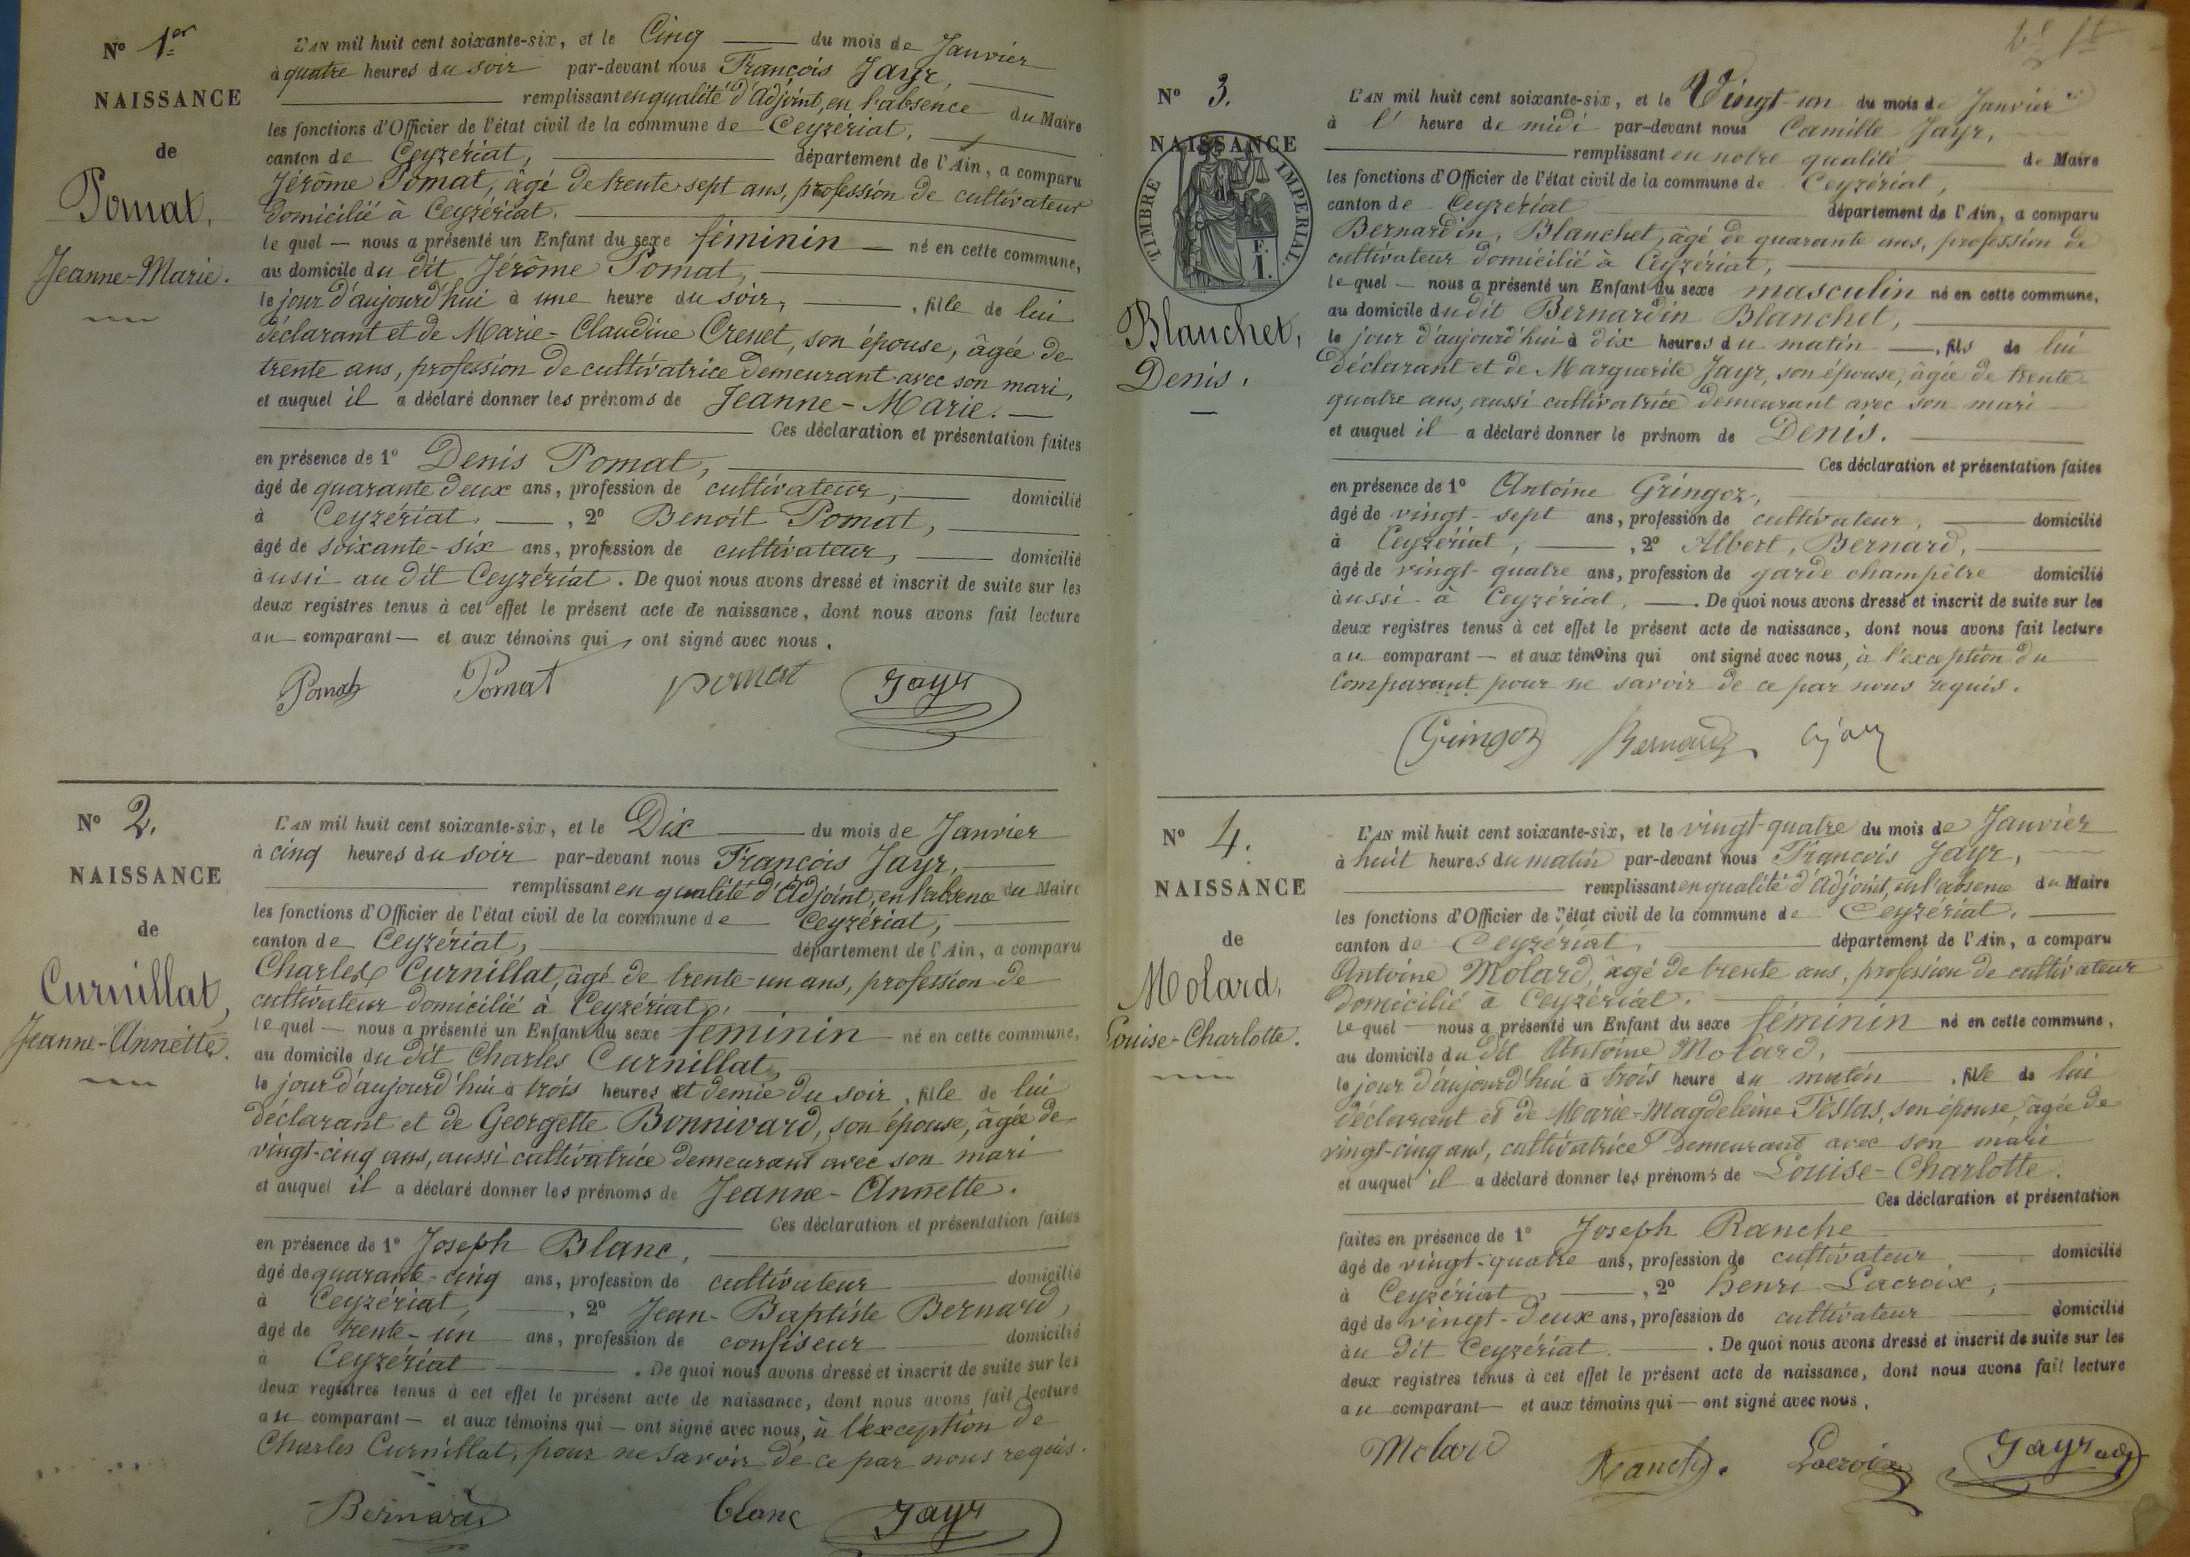 N° 1er
NAISSANCE
de
Pomat,
Jeanne-Marie.
L'AN mil huit cent soixante-six, et le Cinq du mois de Janvier
à quatre heures du soir par-devant nous François Jayr,
remplissant en qualité d'Adjoint, en l'absence du Maire
les fonctions d'Officier de l'état civil de la commune de Ceyzériat,
canton de Ceyzériat, département de l'Ain, a comparu
Jérôme Pomat, âgé de trente sept ans, profession de cultivateur
domicilié à Ceyzériat.
le quel — nous a présenté un Enfant du sexe féminin — né en cette commune,
au domicile du dit Jérôme Pomat,
le jour d'aujourd'hui à une heure du soir, fille de lui
déclarant et de Marie-Claudine Crenet, son épouse, âgée de
trente ans, profession de cultivatrice demeurant avec son mari,
et auquel il a déclaré donner les prénoms de Jeanne-Marie. —
Ces déclaration et présentation faites
en présence de 1° Denis Pomat,
âgé de quarante deux ans, profession de cultivateur, domicilié
à Ceyzériat. , 2° Benoît Pomat,
âgé de soixante-six ans, profession de cultivateur, domicilié
aussi au dit Ceyzériat. De quoi nous avons dressé et inscrit de suite sur les
deux registres tenus à cet effet le présent acte de naissance, dont nous avons fait lecture
au comparant — et aux témoins qui ont signé avec nous.
Pomat Pomat pomat Jayr
N° 2.
NAISSANCE
de
Curnillat,
Jeanne-Annette.
L'AN mil huit cent soixante-six, et le Dix du mois de Janvier
à cinq heures du soir par-devant nous François Jayr,
remplissant en qualité d'Adjoint, en l'absence du Maire
les fonctions d'Officier de l'état civil de la commune de Ceyzériat,
canton de Ceyzériat, département de l'Ain, a comparu
Charles Curnillat, âgé de trente-un ans, profession de
cultivateur domicilié à Ceyzériat,
le quel — nous a présenté un Enfant du sexe féminin né en cette commune,
au domicile du dit Charles Curnillat,
le jour d'aujourd'hui à trois heures et demie du soir, fille de lui
déclarant et de Georgette Bonnivard, son épouse, âgée de
vingt-cinq ans, aussi cultivatrice demeurant avec son mari
et auquel il a déclaré donner les prénoms de Jeanne-Annette.
Ces déclaration et présentation faites
en présence de 1° Joseph Blanc,
âgé de quarante-cinq ans, profession de cultivateur domicilié
à Ceyzériat, , 2° Jean-Baptiste Bernard,
âgé de trente-un ans, profession de confiseur domicilié
à Ceyzériat . De quoi nous avons dressé et inscrit de suite sur les
deux registres tenus à cet effet le présent acte de naissance, dont nous avons fait lecture
au comparant — et aux témoins qui — ont signé avec nous, à l'exception de
Charles Curnillat, pour ne savoir de ce par nous requis.
Bernard blanc Jayr
N° 3.
NAISSANCE
de
TIMBRE IMPERIAL
F. 1.
Blanchet,
Denis.
L'AN mil huit cent soixante-six, et le Vingt-un du mois de Janvier
à l' heure de midi par-devant nous Camille Jayr,
remplissant en notre qualité de Maire
les fonctions d'Officier de l'état civil de la commune de Ceyzériat,
canton de Ceyzériat département de l'Ain, a comparu
Bernardin, Blanchet, âgé de quarante ans, profession de
cultivateur domicilié à Ceyzériat,
le quel — nous a présenté un Enfant du sexe masculin né en cette commune,
au domicile du dit Bernardin Blanchet,
le jour d'aujourd'hui à dix heures du matin —, fils de lui
déclarant et de Marguerite Jayr, son épouse, âgée de trente
quatre ans, aussi cultivatrice demeurant avec son mari
et auquel il a déclaré donner le prénom de Denis.
Ces déclaration et présentation faites
en présence de 1° Antoine Gringoz,
âgé de vingt-sept ans, profession de cultivateur, domicilié
à Ceyzériat, , 2° Albert, Bernard,
âgé de vingt-quatre ans, profession de garde champêtre domicilié
aussi à Ceyzériat, . De quoi nous avons dressé et inscrit de suite sur les
deux registres tenus à cet effet le présent acte de naissance, dont nous avons fait lecture
au comparant — et aux témoins qui ont signé avec nous, à l'exception du
Comparant pour ne savoir de ce par nous requis.
Gringoz Bernard
N° 4.
NAISSANCE
de
Molard,
Louise-Charlotte.
L'AN mil huit cent soixante-six, et le vingt-quatre du mois de Janvier
à huit heures du matin par-devant nous François Jayr,
remplissant en qualité d'Adjoint, en l'absence du Maire
les fonctions d'Officier de l'état civil de la commune de Ceyzériat.
canton de Ceyzériat, département de l'Ain, a comparu
Antoine Molard, âgé de trente ans, profession de cultivateur
domicilié à Ceyzériat.
le quel — nous a présenté un Enfant du sexe féminin né en cette commune,
au domicile du dit Antoine Molard,
le jour d'aujourd'hui à trois heure du matin , fille de lui
déclarant et de Marie-Magdeleine Tissas, son épouse, âgée de
vingt-cinq ans, cultivatrice demeurant avec son mari
et auquel il a déclaré donner les prénoms de Louise-Charlotte.
Ces déclaration et présentation
faites en présence de 1° Joseph Ranche
âgé de vingt-quatre ans, profession de cultivateur domicilié
à Ceyzériat, , 2° henri Lacroix,
âgé de vingt-deux ans, profession de cultivateur domicilié
au dit Ceyzériat . De quoi nous avons dressé et inscrit de suite sur les
deux registres tenus à cet effet le présent acte de naissance, dont nous avons fait lecture
au comparant — et aux témoins qui — ont signé avec nous.
Molard Ranche Lacroix Jayr adj